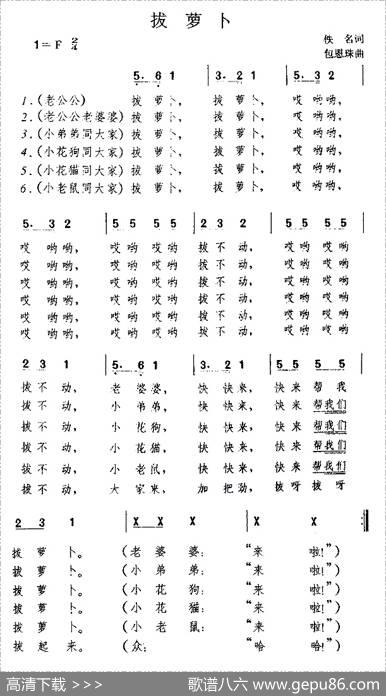 拔 萝 卜
1=F 2/4
佚 名词
包恩珠曲
5. 6 1 | 3. 2 1 | 5. 3 2 |
1.(老公公) 拔 萝卜, 拔 萝卜, 哎 哟哟,
2.(老公公老婆婆) 拔 萝卜, 拔 萝卜, 哎 哟哟,
3.(小弟弟同大家) 拔 萝卜, 拔 萝卜, 哎 哟哟,
4.(小花狗同大家) 拔 萝卜, 拔 萝卜, 哎 哟哟,
5.(小花猫同大家) 拔 萝卜, 拔 萝卜, 哎 哟哟,
6.(小老鼠同大家) 拔 萝卜, 拔 萝卜, 哎 哟哟,
5. 3 2 | 5 5 5 5 | 2 3 2 | 5 5 5 5 |
哎 哟哟, 哎哟 哎哟 拔不动, 哎哟 哎哟
哎 哟哟, 哎哟 哎哟 拔不动, 哎哟 哎哟
哎 哟哟, 哎哟 哎哟 拔不动, 哎哟 哎哟
哎 哟哟, 哎哟 哎哟 拔不动, 哎哟 哎哟
哎 哟哟, 哎哟 哎哟 拔不动, 哎哟 哎哟
哎 哟哟, 哎哟 哎哟 拔不动, 哎哟 哎哟
2 3 1 | 5. 6 1 | 3. 2 1 | 5 5 5 5 |
拔不动, 老婆婆, 快 快来, 快来 帮我
拔不动, 小弟弟, 快 快来, 快来 帮我们
拔不动, 小花狗, 快 快来, 快来 帮我们
拔不动, 小花猫, 快 快来, 快来 帮我们
拔不动, 小老鼠, 快 快来, 快来 帮我们
拔不动, 大家来, 加 把劲, 拔呀 拔呀
2 3 1 | X X X | X X
拔萝卜。 (老婆婆: “来 啦!”)
拔萝卜。 (小弟弟: “来 啦!”)
拔萝卜。 (小花狗: “来 啦!”)
拔萝卜。 (小花猫: “来 啦!”)
拔萝卜。 (小老鼠: “来 啦!”)
拔起来。 (众: “哈 哈!”)
高清下载 >>>
歌谱八六 www.gepu86.com